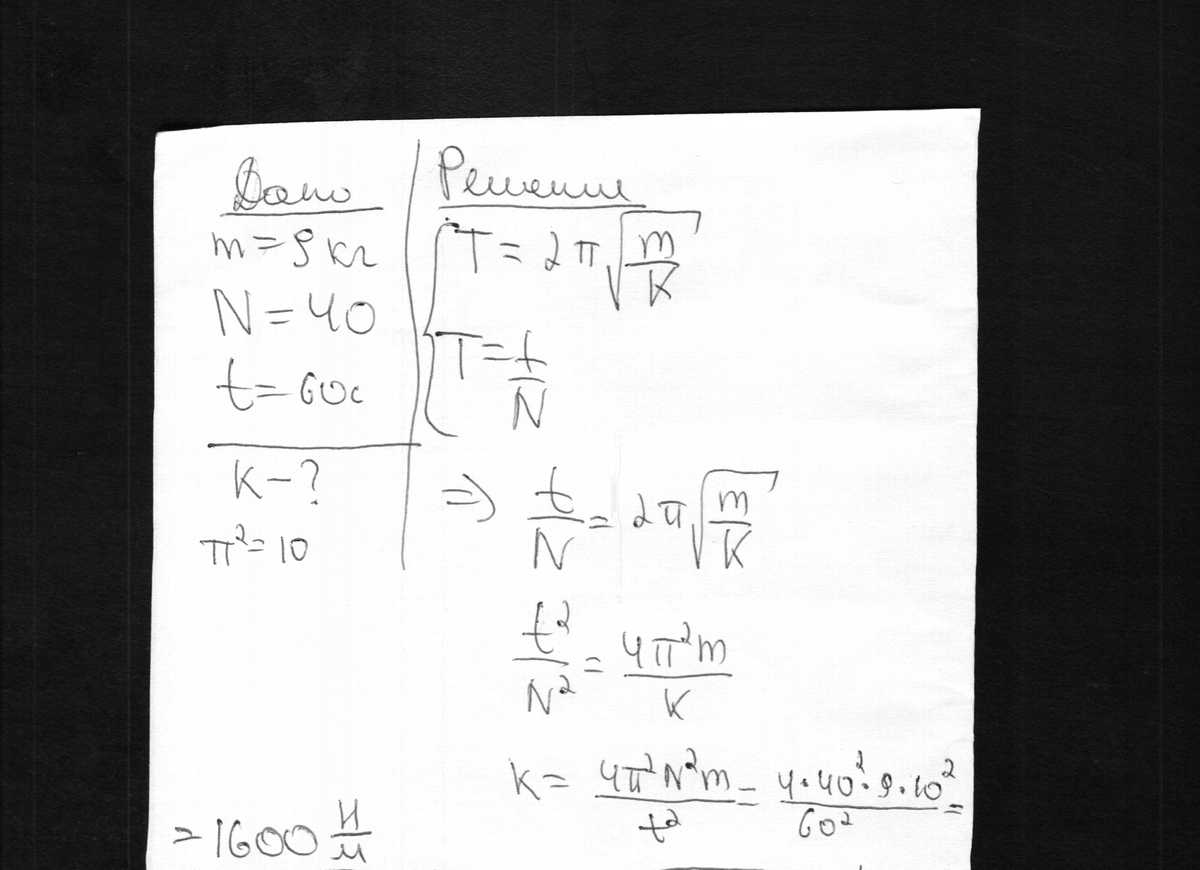 Дано
m = 9 кг
N = 40
t = 60с
K - ?
π² = 10
Решение
T = 2π√(m/K)
T = t/N
=> t/N = 2π√(m/K)
t²/N² = 4π²m/K
K = 4π²N²m/t² = 4·40²·9·10²/60² =
= 1600 Н/м